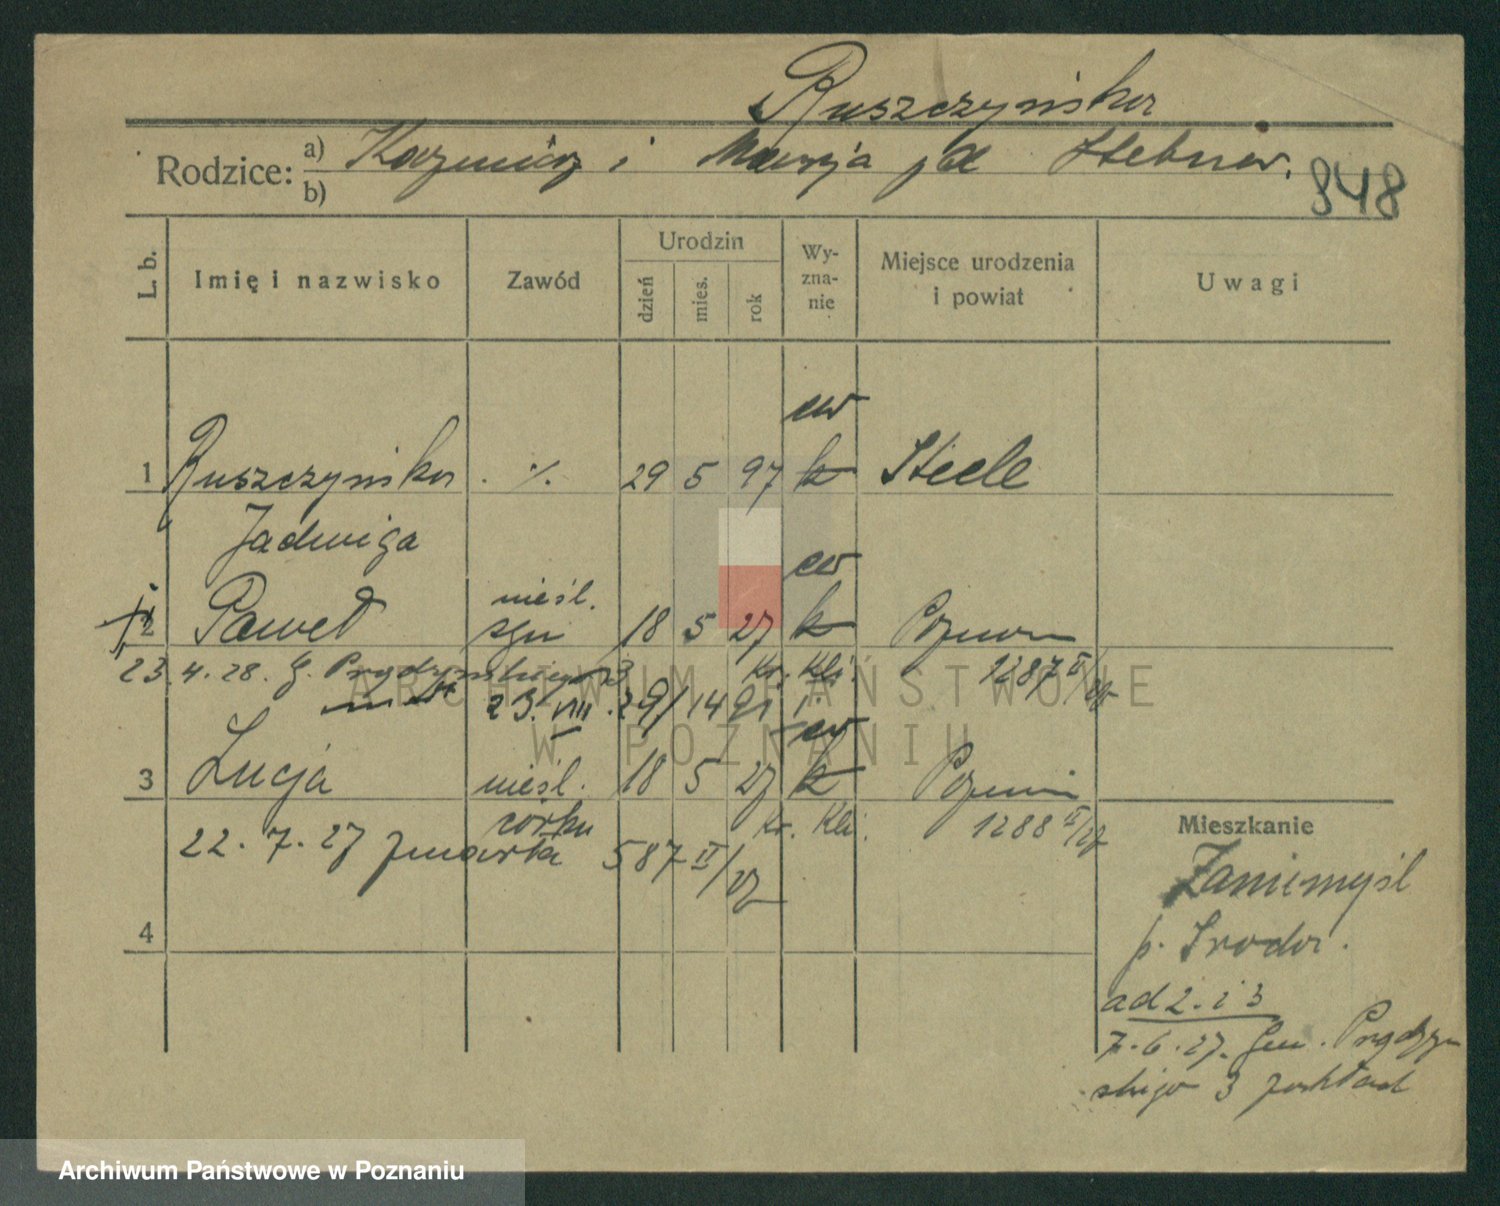 Ruszczyńska
Rodzice: a) Kazmierz i Marja
b)
848
L. b. Imię i nazwisko Zawód Urodzin dzień mies. rok Wyznanie Miejsce urodzenia i powiat Uwagi
ew
1 Ruszczyńska ./. 29 5 97 k Steele
Jadwiga
ew
nieśl.
2 Paweł syn 18 5 27 k Poznań
23.4.28. G. Prądzyńskiego 3 Kr. Kli. 1287 II/27
23. VIII. 29/
ew
3 Łucja nieśl. 18 5 27 k Poznań
córka Kr. Kli. 1288 II/27
22. 7. 27 zmarła 587 II/27
4
Mieszkanie
Zaniemyśl
p. Środa.
ad 2. i 3
7.6.27. Gen. Prądzyń
skiego 3 zakład
ARCHIWUM PAŃSTWOWE
W POZNANIU
Archiwum Państwowe w Poznaniu